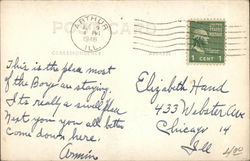 POST CARD
ARTHUR
ILL.
1 CENT 1
This is the place most
of the Boys are staying.
Its really a swell place
you you all better
come down here.
Armin
Elizabeth Hand
433 Webster Ave
Chicago 14
Ill